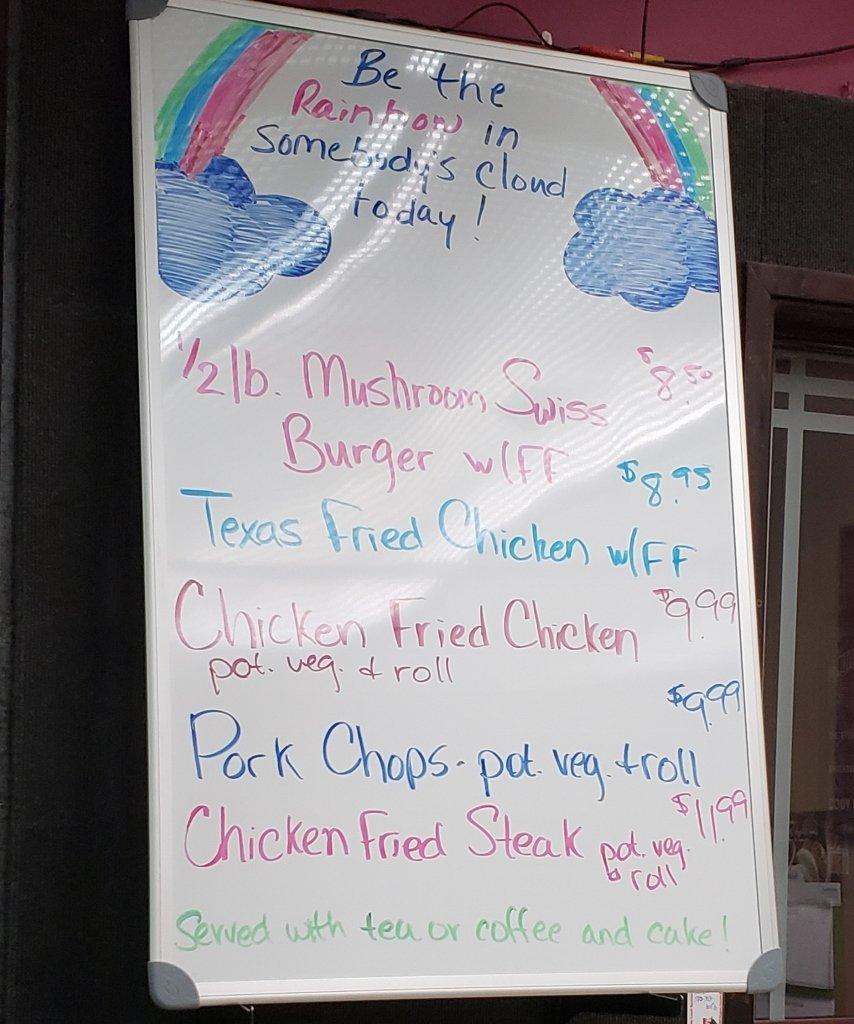 Be the
Rainbow in
Somebody's cloud
today!
1/2 lb. Mushroom Swiss $8.50
Burger w/FF
$8.95
Texas Fried Chicken w/FF
Chicken Fried Chicken $9.99
pot. veg. & roll
$9.99
Pork Chops - pot. veg. + roll
Chicken Fried Steak pot. veg. $11.99
& roll
Served with tea or coffee and cake!